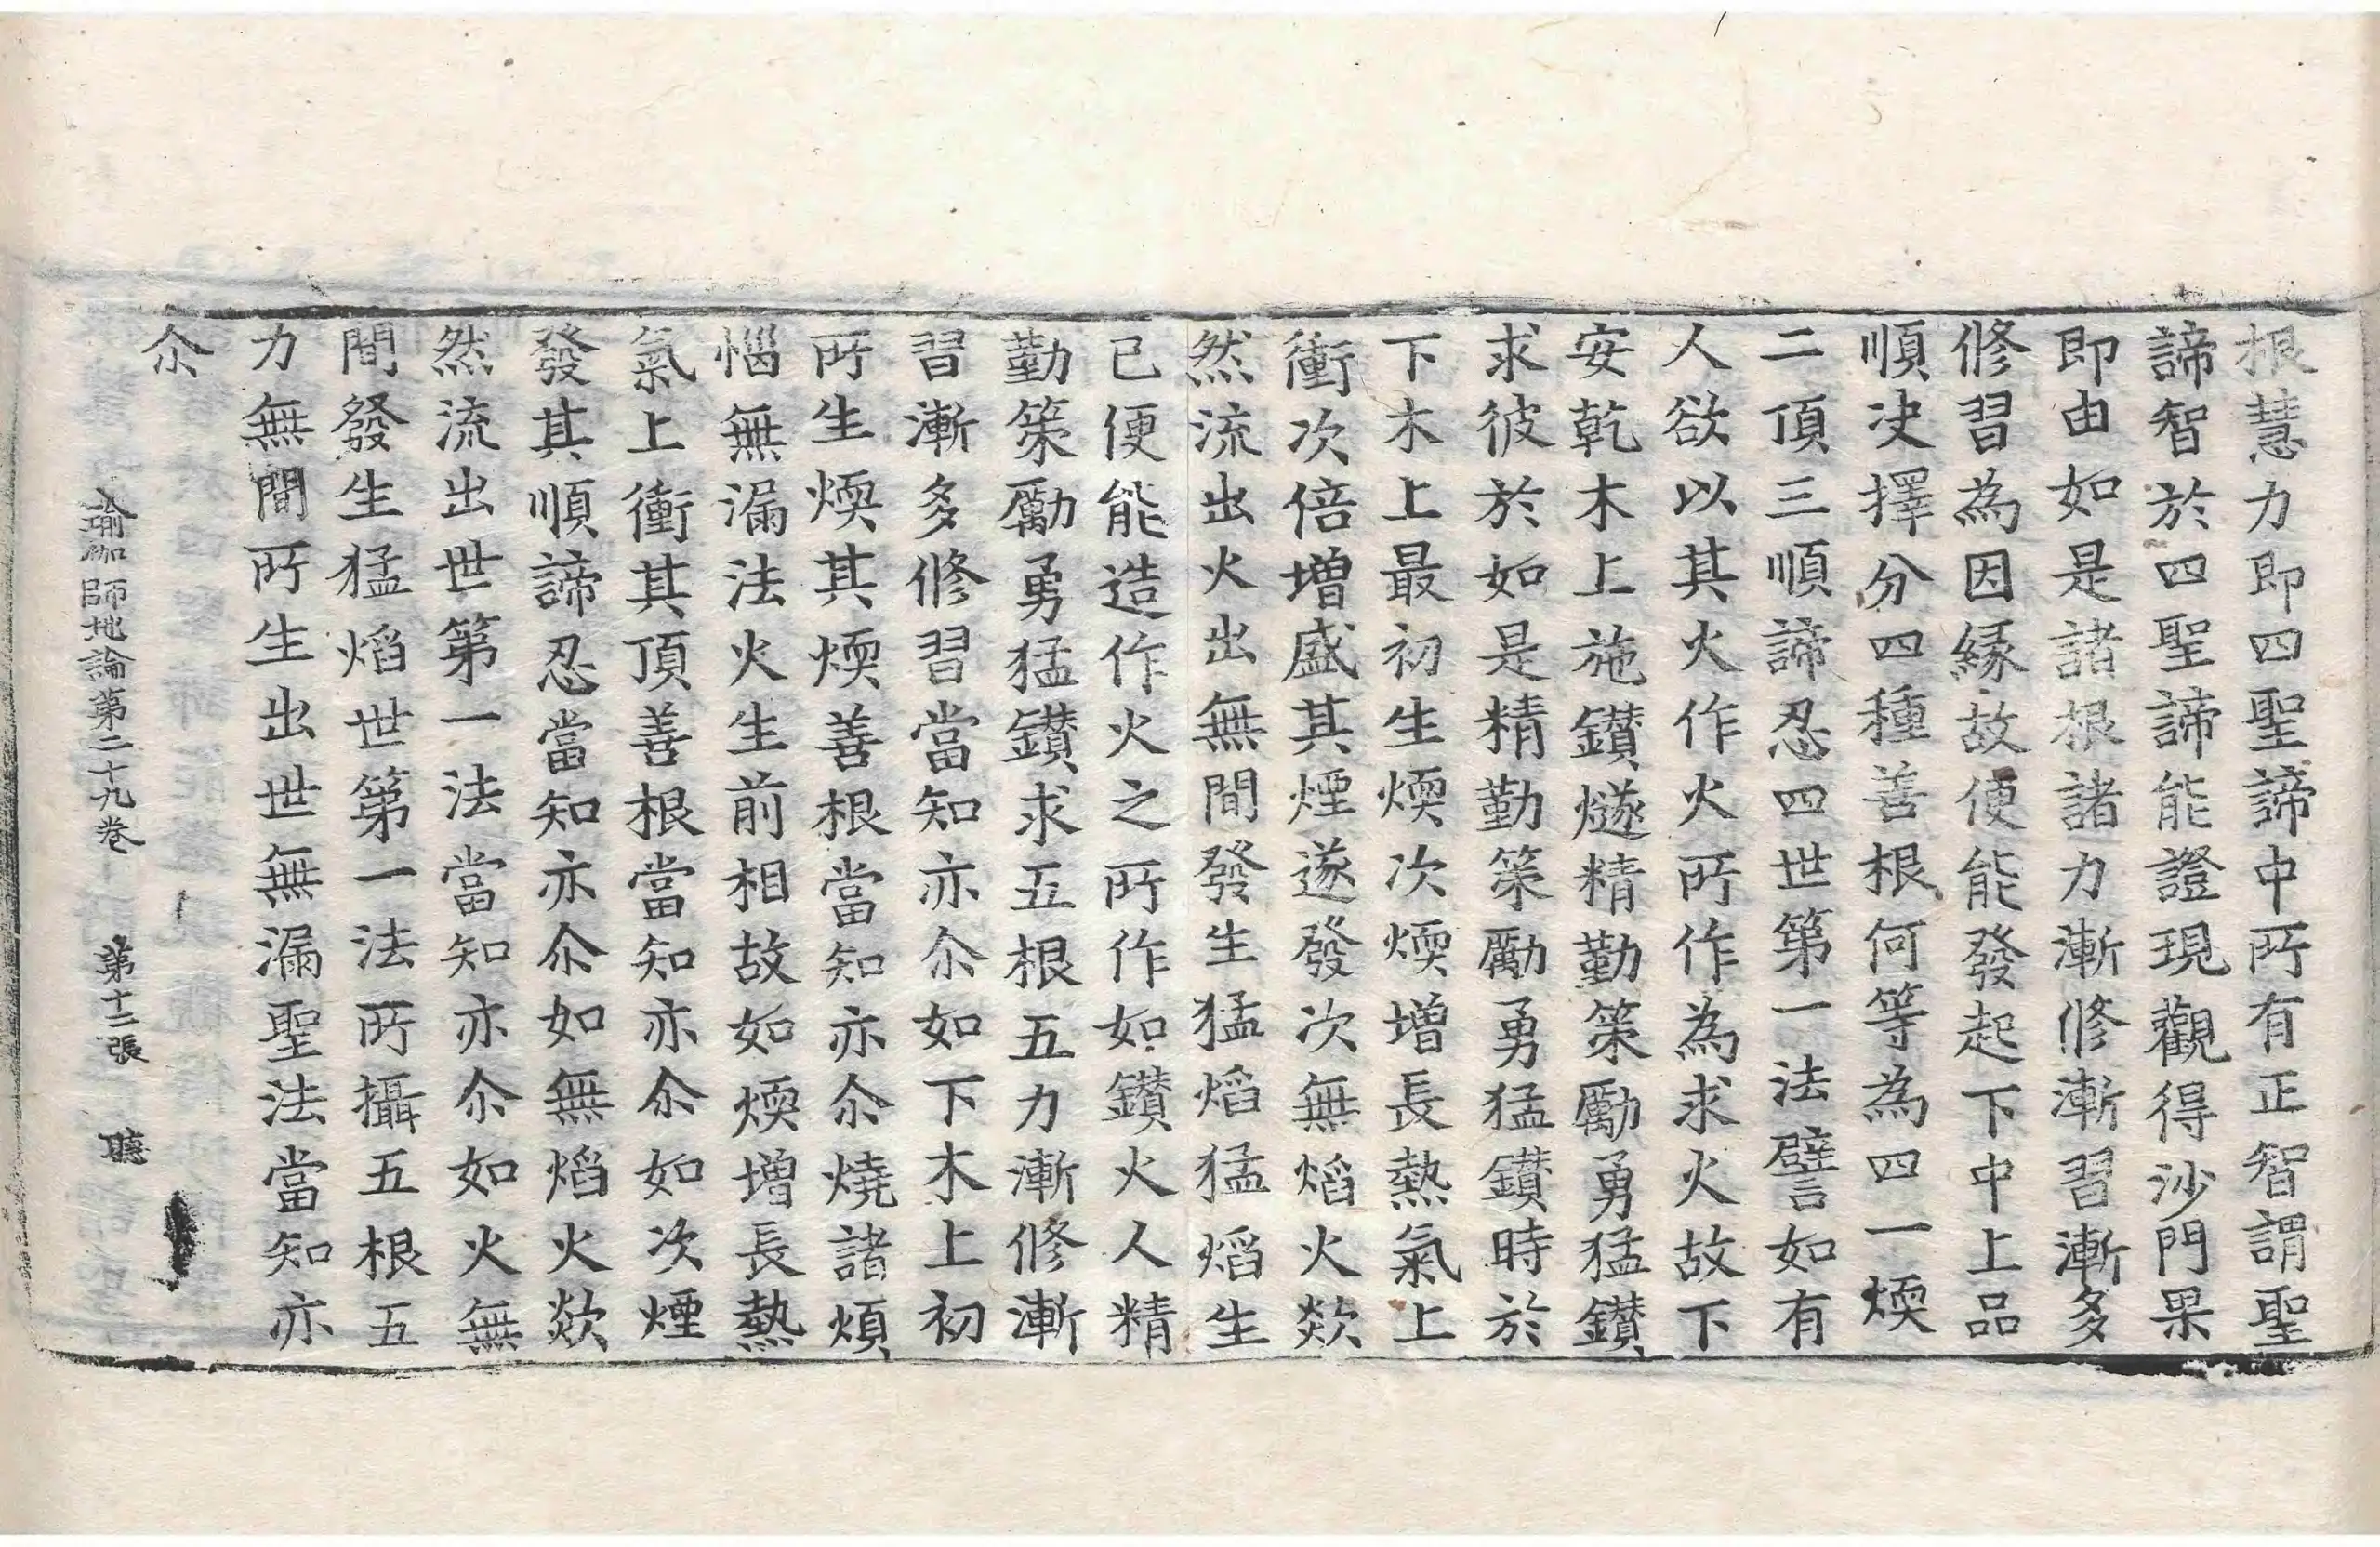 根慧力即四聖諦中所有正智謂聖
諦智於四聖諦能證現觀得沙門果
即由如是諸根諸力漸修漸習漸多
修習為因緣故便能發起下中上品
順决擇分四種善根何等為四一煗
二頂三順諦忍四世第一法譬如有
人欲以其火作火所作為求火故下
安乾木上施鑚燧精勤策勵勇猛鑚
求彼於如是精勤策勵勇猛鑚時於
下木上最初生煗次煗增長熱氣上
衝次倍增盛其煙遂發次無焰火欻
然流出火出無間發生猛焰猛焰生
已便能造作火之所作如鑚火人精
勤策勵勇猛鑚求五根五力漸修漸
習漸多修習當知亦尒如下木上初
所生煗其煗善根當知亦尒燒諸煩
惱無漏法火生前相故如煗增長熱
氣上衝其頂善根當知亦尒如次煙
發其順諦忍當知亦尒如無焰火欻
然流出世第一法當知亦尒如火無
間發生猛焰世第一法所攝五根五
力無間所生出世無漏聖法當知亦
尒
瑜伽師地論第二十九卷 第十二張 聽